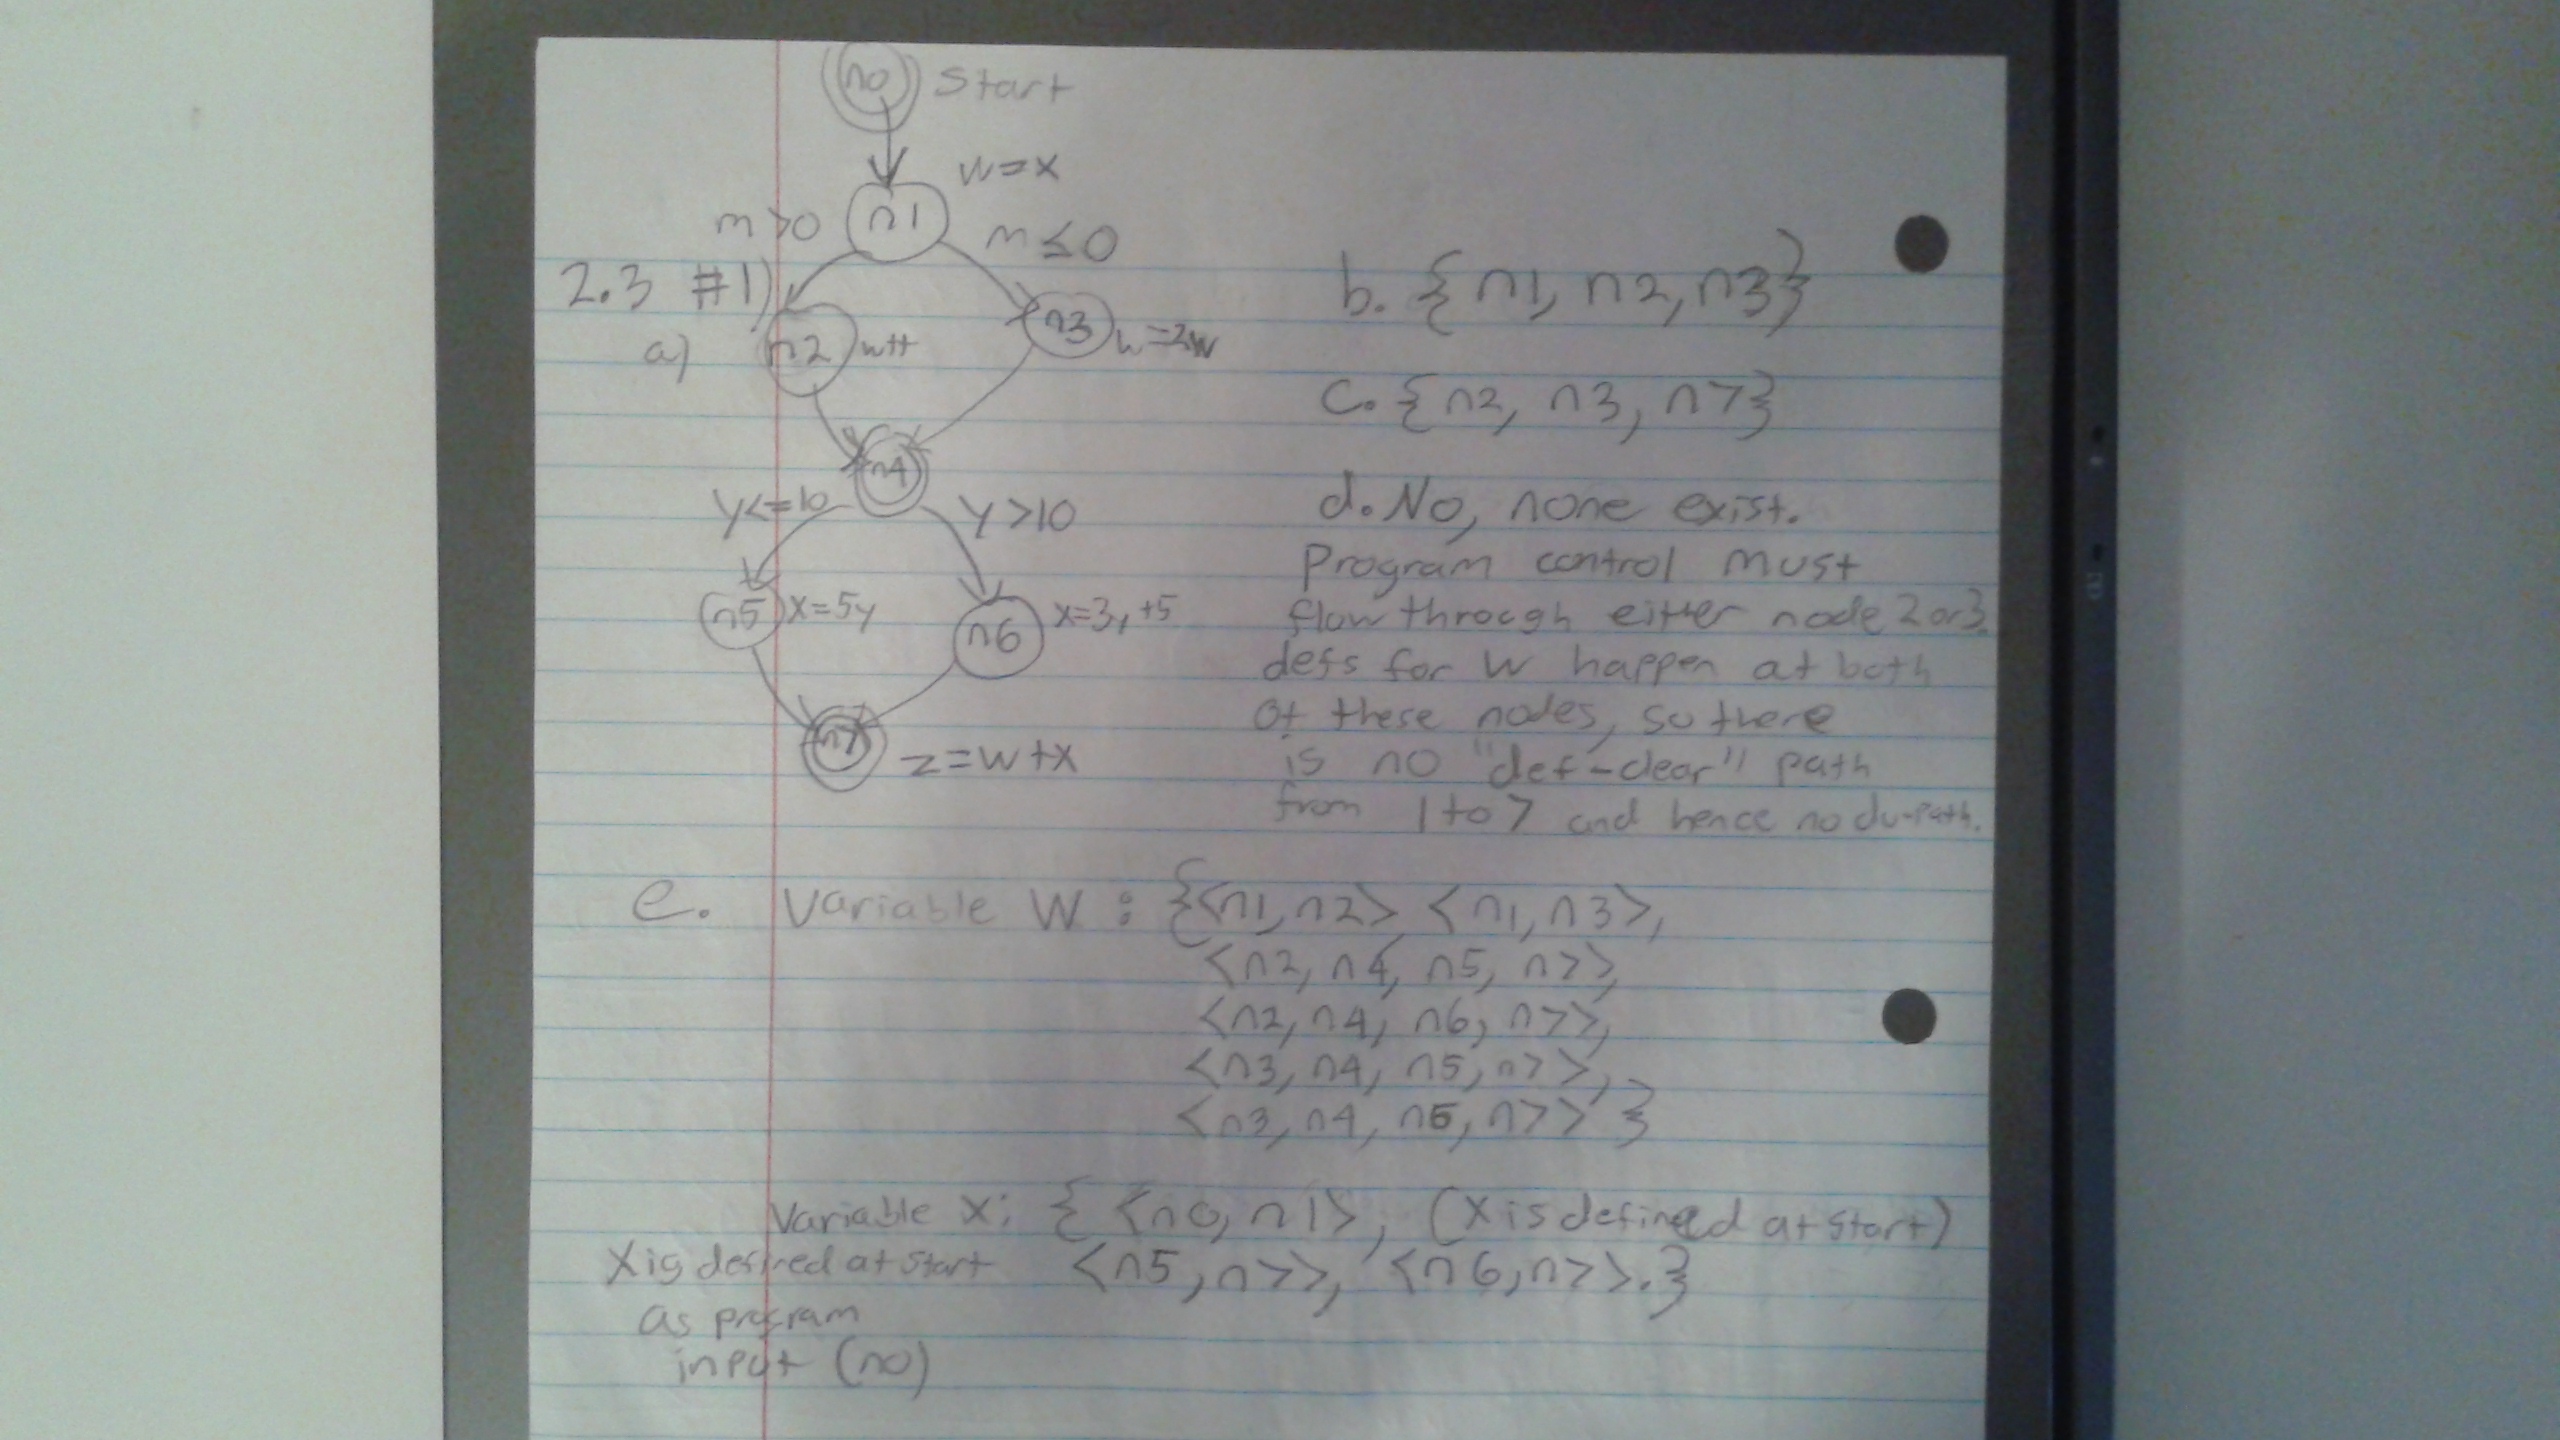 n0 Start
n1 w=x
m>0 m≤0
2.3 #1)
a) n2 w++ n3 w=2w
n4
y<=10 y>10
n5 x=5y n6 x=3y+5
n7 z=w+x
b. {n1, n2, n3}
c. {n2, n3, n7}
d. No, none exist.
Program control must
flow through either node 2 or 3
defs for w happen at both
of these nodes, so there
is no "def-clear" path
from 1 to 7 and hence no du-path.
e. Variable W: {<n1, n2> <n1, n3>,
<n2, n4, n5, n7>,
<n2, n4, n6, n7>,
<n3, n4, n5, n7>,
<n3, n4, n5, n7>}
Variable X: {<n0, n1>, (X is defined at start)
X is defined at start <n5, n7>, <n6, n7>.}
as program
input (n0)